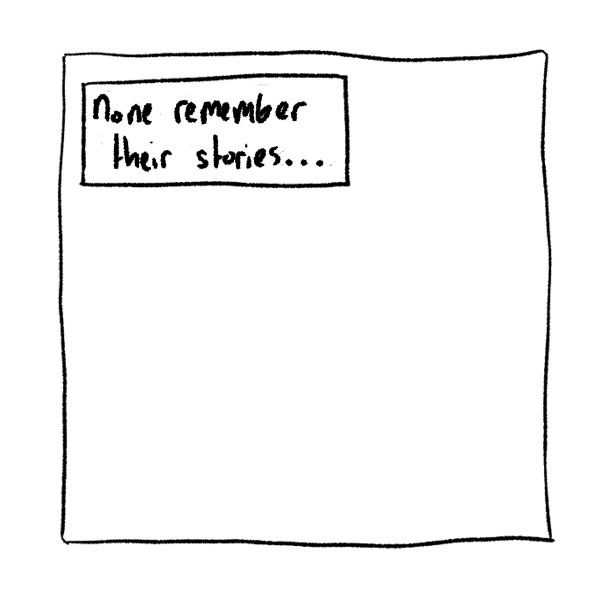 None remember
their stories...